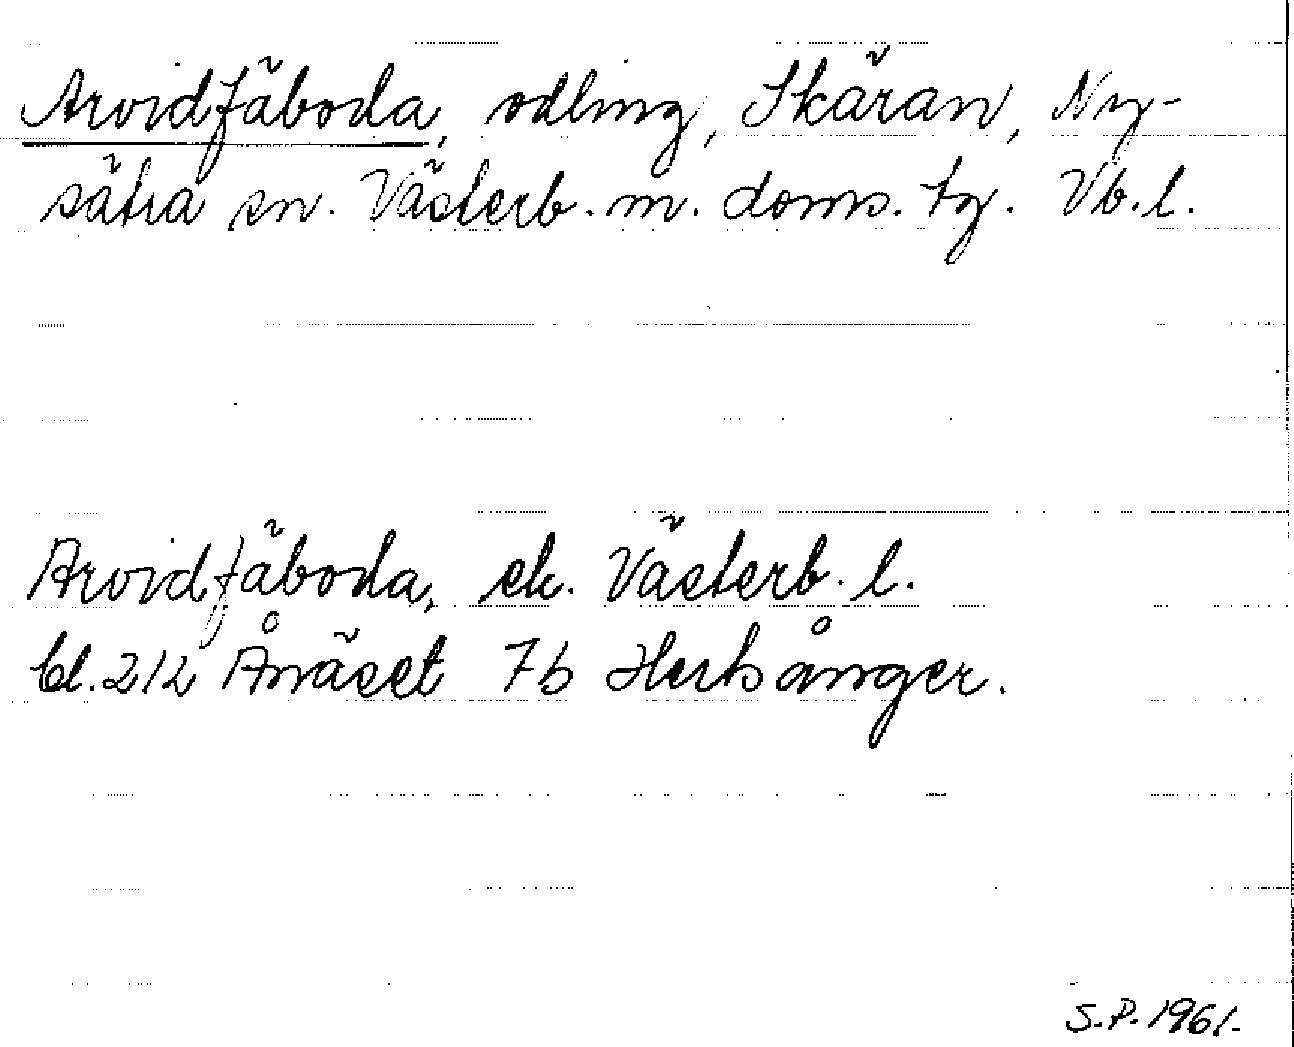 Arvidfäboda, odling, Skäran, Ny-
sätra sn. Västerb. m. doms. tg. Vb. l.
Arvidfäboda, ek. Västerb. l.
bl. 212 Ånäset 7b Hertsånger.
S.P. 1961.